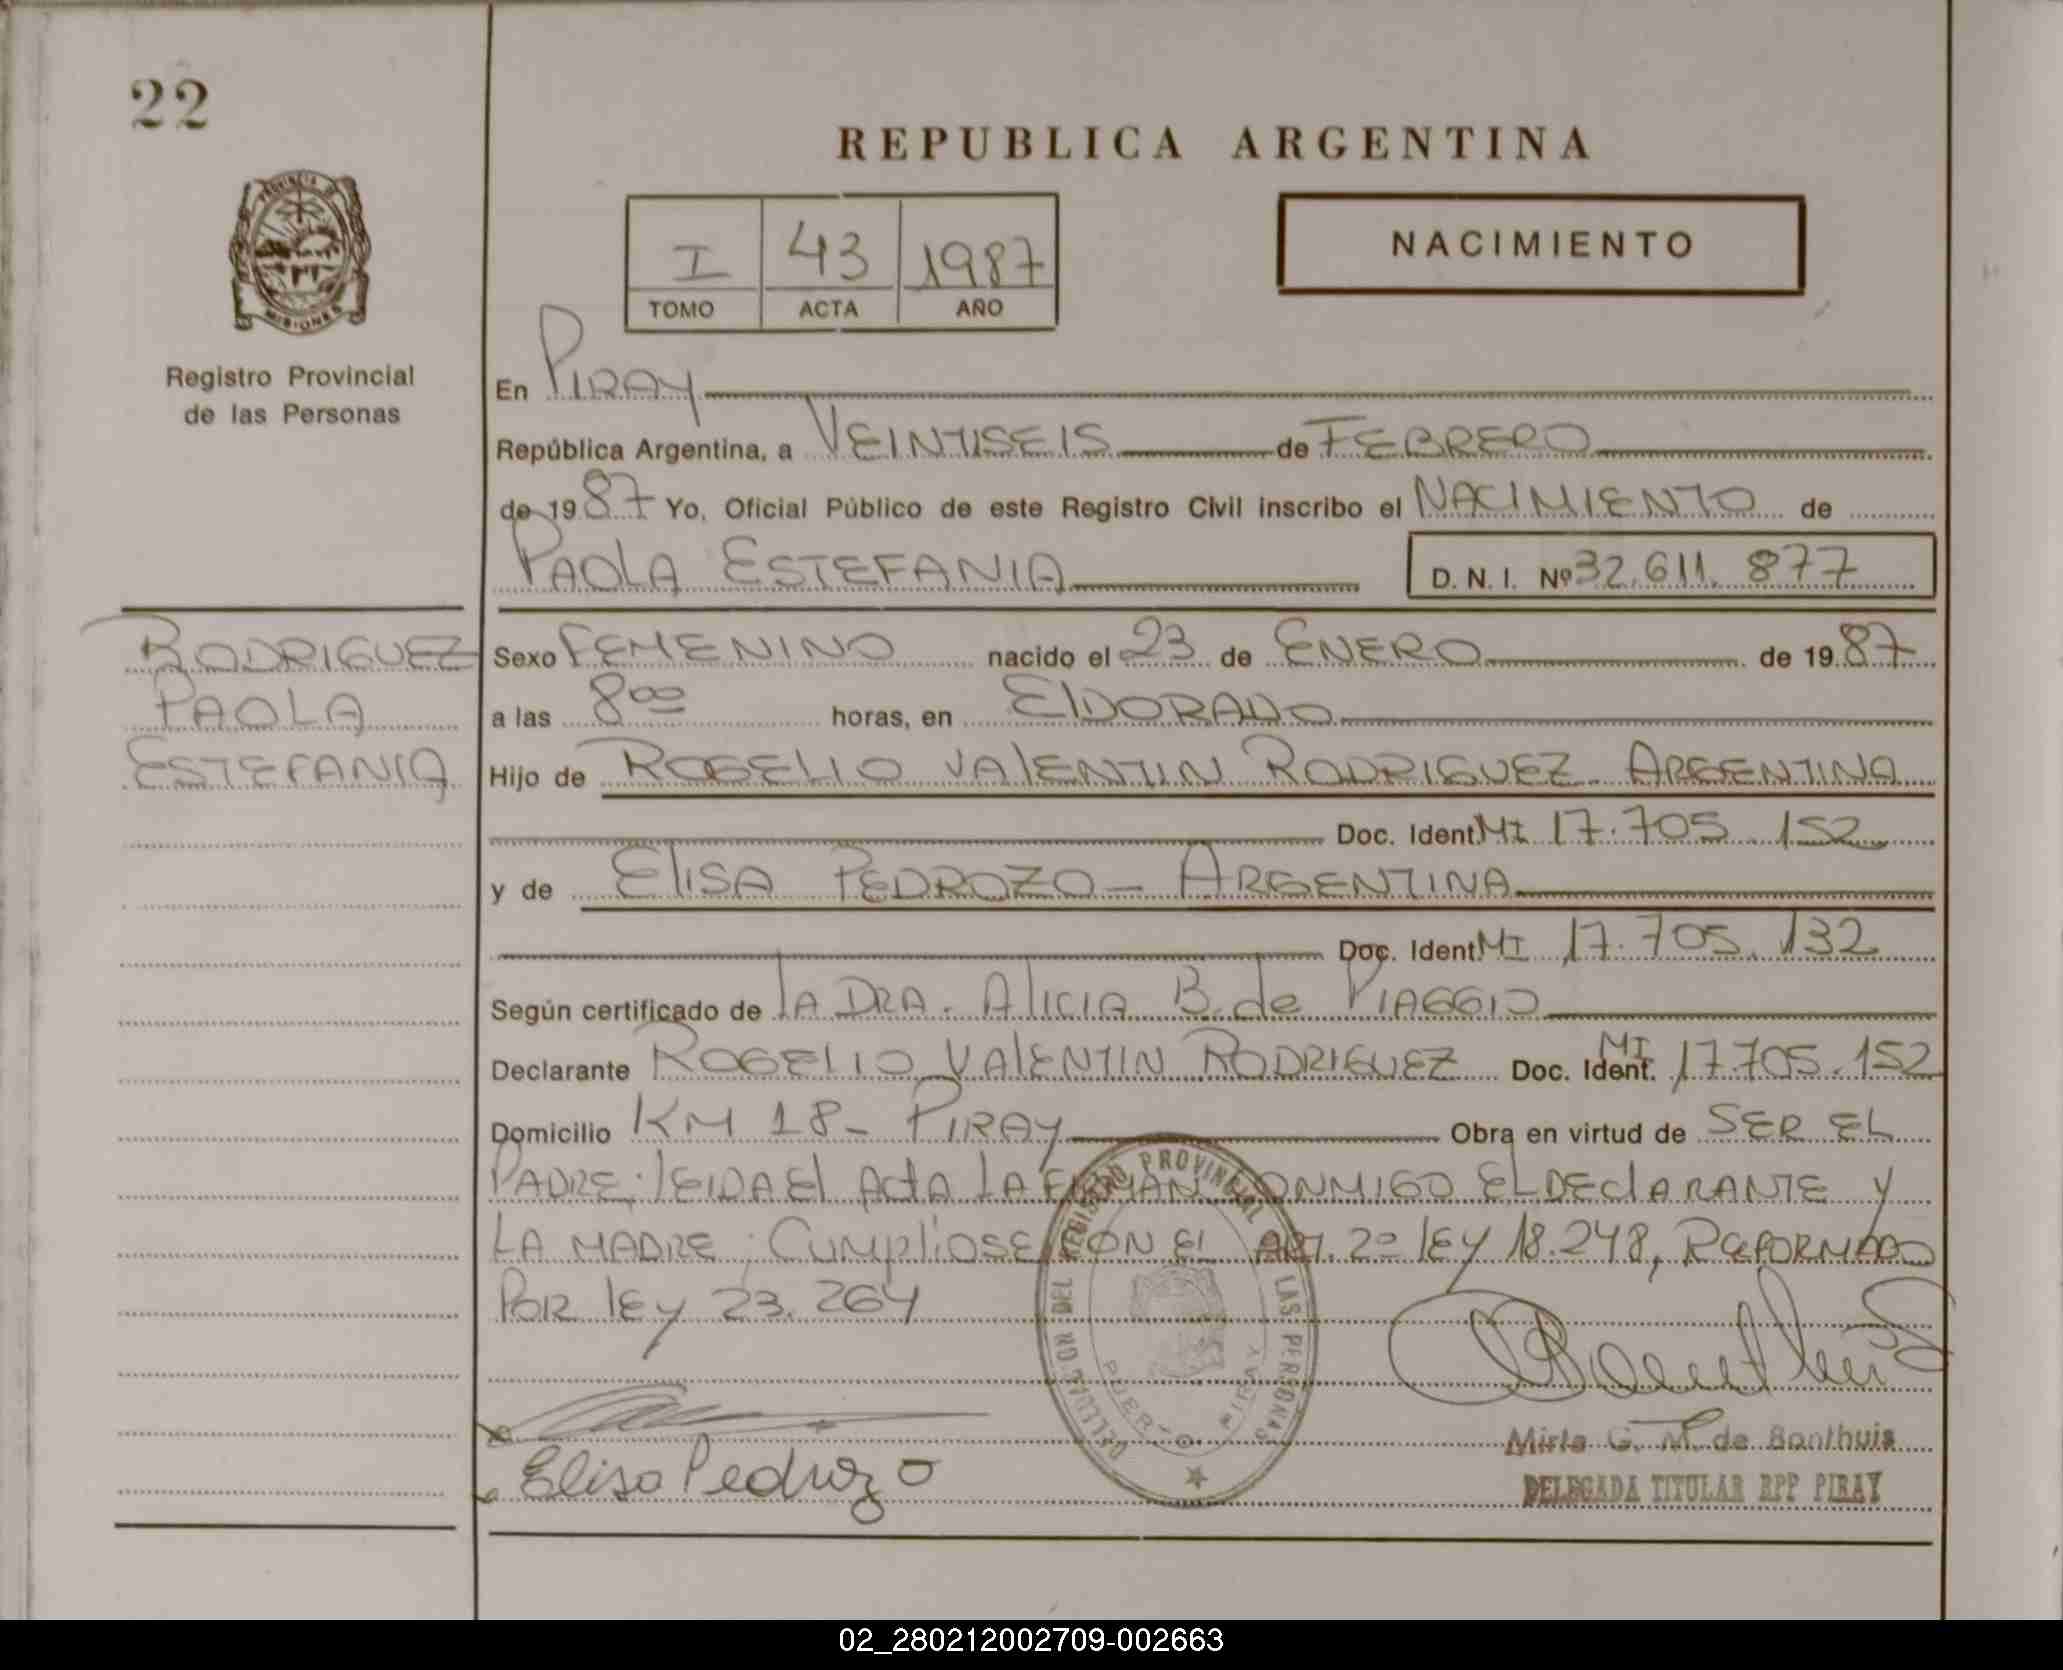 22
REPUBLICA ARGENTINA
PROVINCIA DE
MISIONES
I 43 1987
TOMO ACTA AÑO
NACIMIENTO
Registro Provincial
de las Personas
En PIRAY
República Argentina, a VEINTISEIS de FEBRERO
de 1987 Yo, Oficial Público de este Registro Civil inscribo el NACIMIENTO de
PAOLA ESTEFANIA D. N. I. Nº 32.611.877
RODRIGUEZ
PAOLA
ESTEFANIA
Sexo FEMENINO nacido el 23 de ENERO de 1987
a las 8 00 horas, en ElDORADO
Hijo de ROGELIO VAlENTIN RODRIGUEZ - ARGENTINA
Doc. Ident. MI 17.705.152
y de ElISA PEDROZO - ARGENTINA
Doc. Ident. MI 17.705.132
Según certificado de lA DRA. AlICIA B. de PIAGGIO
Declarante ROGELIO VAlENTIN RODRIGUEZ Doc. Ident. MI 17.705.152
Domicilio KM 18 - PIRAY Obra en virtud de SER EL
PADRE. lEIDA El ActA LA FIRMAN CONMIGO EL DEClARANTE Y
LA MADRE. CUMPlIOSE CON El ART. 2º lEY 18.248, REFORMADO
POR lEY 23.264
DELEGACION DEL REGISTRO PROVINCIAL DE LAS PERSONAS
PUERTO PIRAY
Elisa Pedrozo
Mirta G. M. de Bonthuis
DELEGADA TITULAR RPP PIRAY
02_280212002709-002663